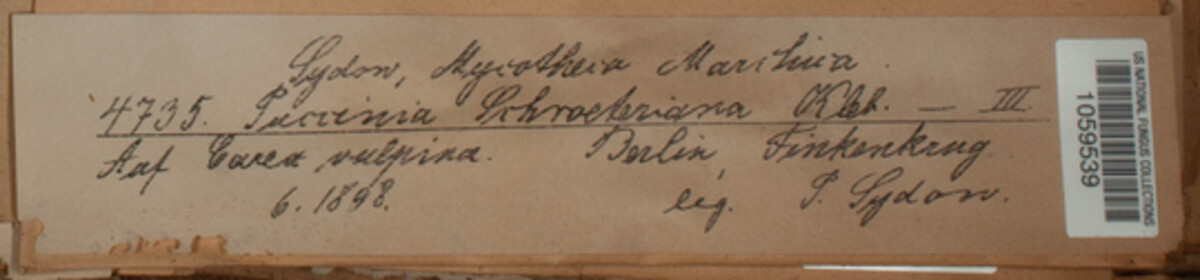 Sydow, Mycotheca Marchica.
4735. Puccinia Schroeteriana Kleb. — III.
Auf Carex vulpina. Berlin, Finkenkrug.
6. 1898. leg. P. Sydow.
US NATIONAL FUNGUS COLLECTIONS
1059539